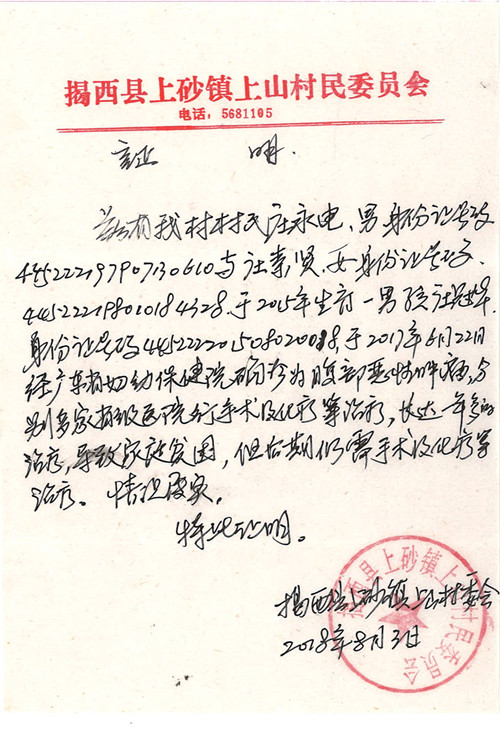 揭西县上砂镇上山村民委员会
电话：5681105
证 明
兹有我村村民庄永电，男身份证号码
445222197907130610与庄素贤，女身份证号码
445222198010184328.于2015年生育一男孩庄冠
身份证号码445222201508020018于2017年6月22日
经广东省妇幼保健院确诊为腹部恶性肿瘤,分
别多家省级医院进行手术及化疗等治疗,长达一年多的
治疗,导致家庭贫困,但后期仍需手术及化疗等
治疗。情况属实。
特此证明。
揭西县上砂镇上山村委会
2018年8月3日
揭西县上砂镇上山村民委员会